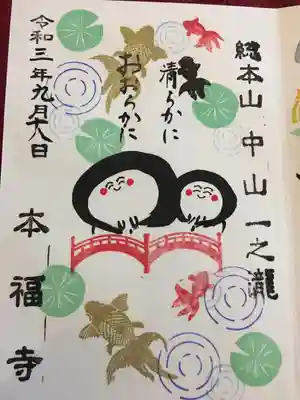 総本山 中山 一之瀧
清らかに
おおらかに
令和三年九月六日
本福寺